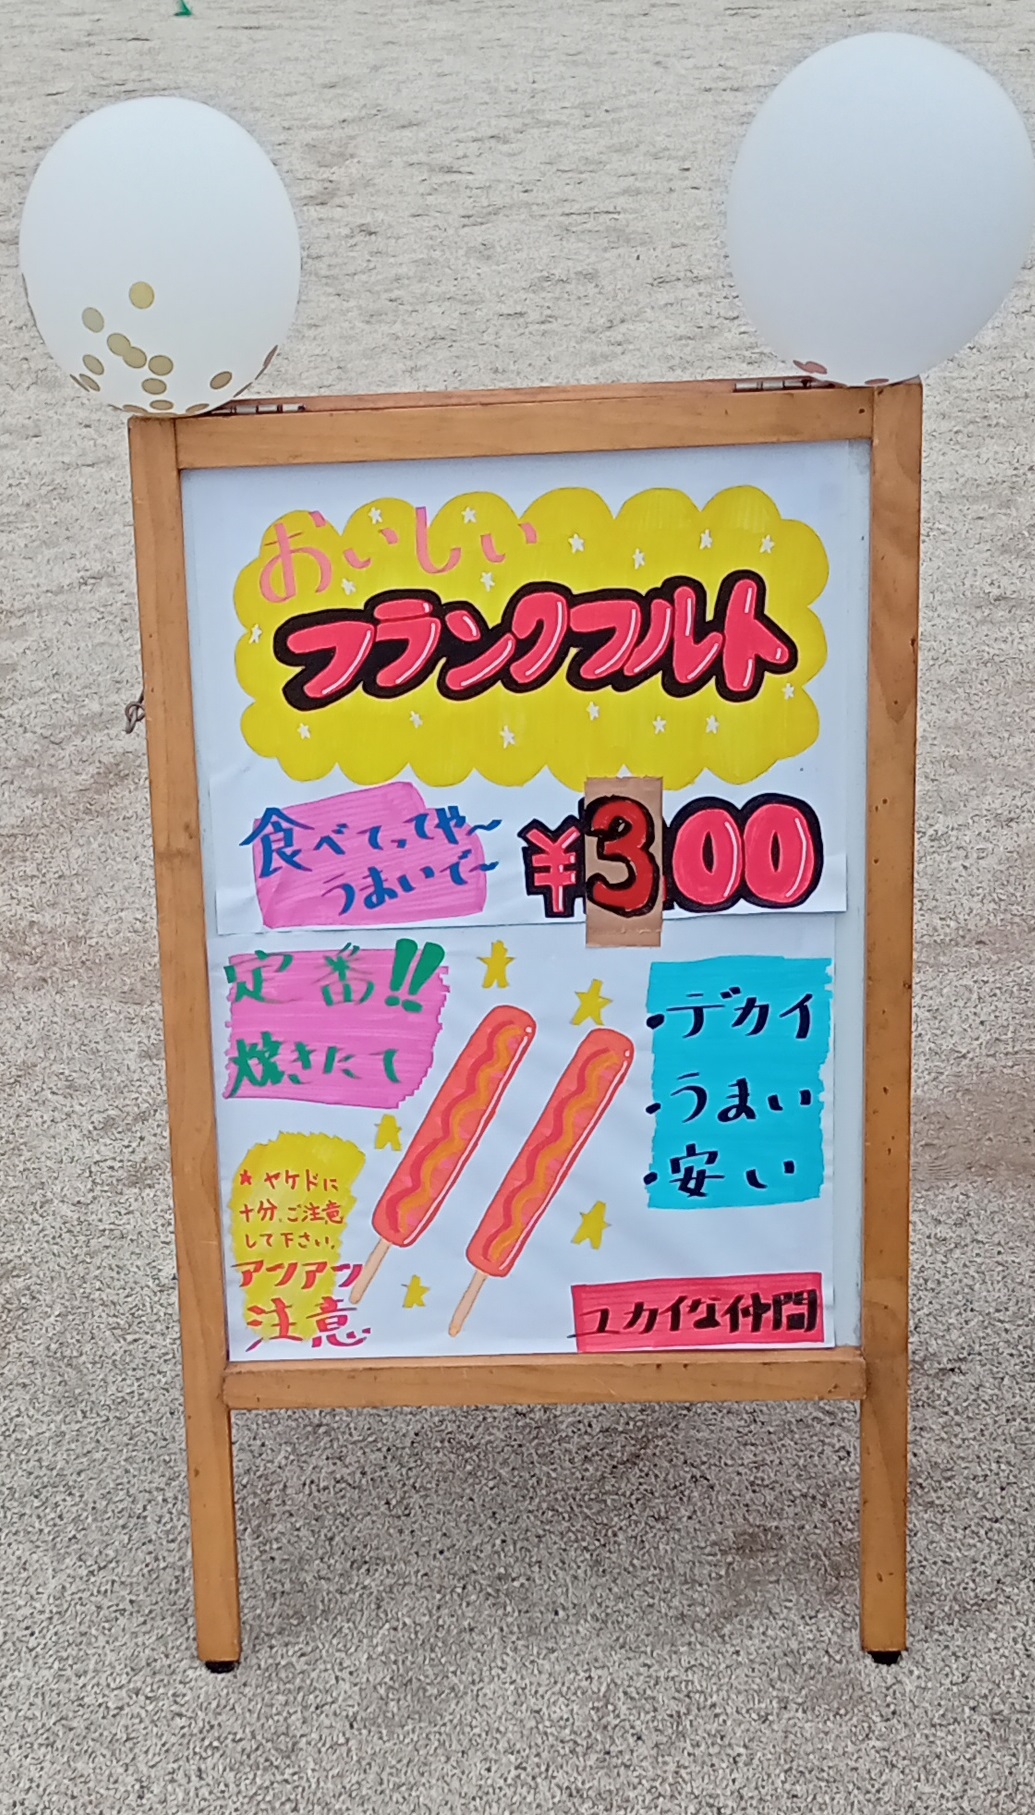 おいしい
フランクフルト
食べてってや〜
うまいで〜
¥300
定番!!
焼きたて
・デカイ
・うまい
・安い
★ヤケドに
十分、ご注意
して下さい。
アツアツ
注意
ユカイな仲間